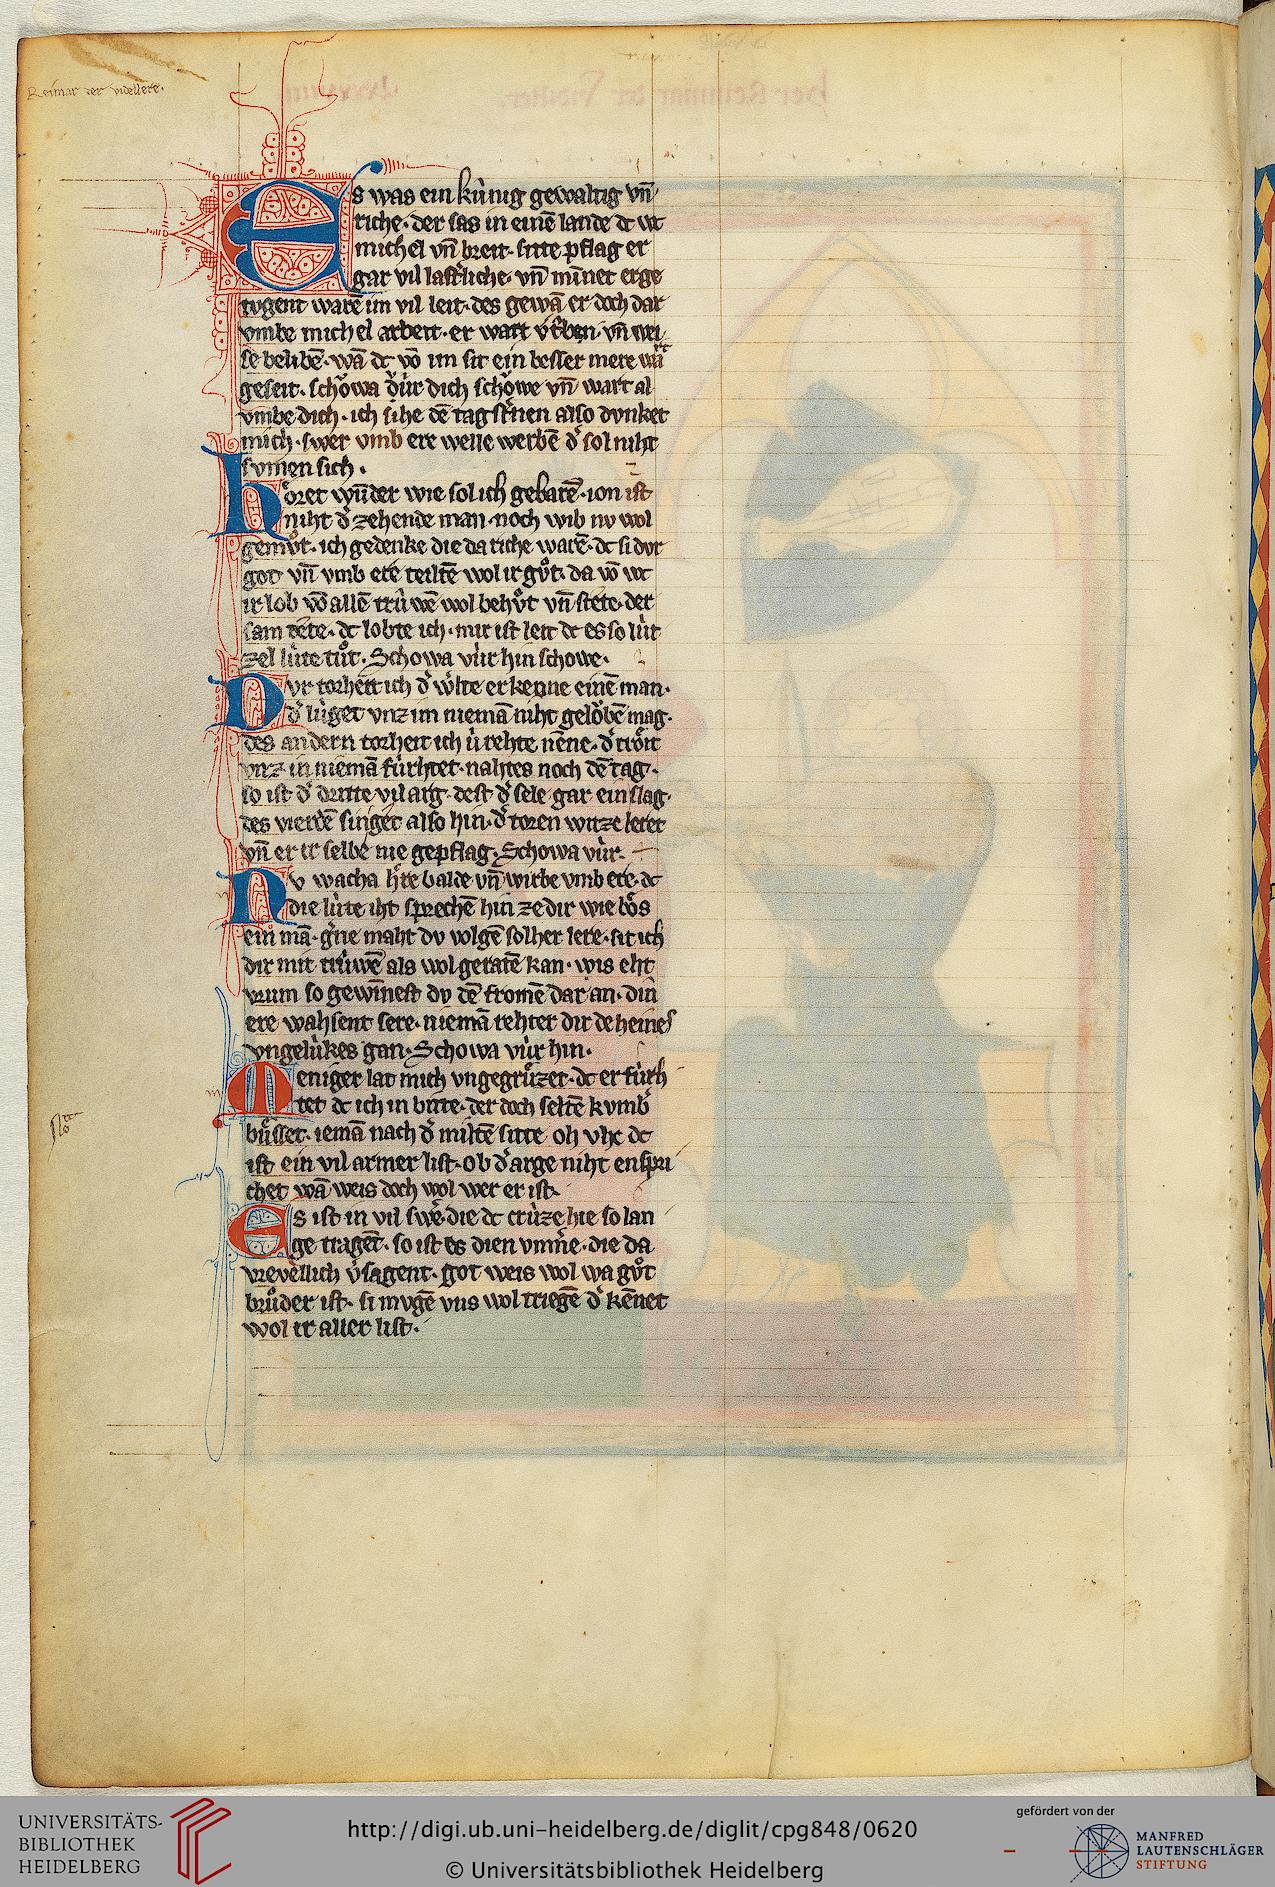 Reimar der videllere.
Es was ein kúnig gewaltig vñ
riche· der sas in einē lande dc wc
michel vñ breit· sitte pflag er
gar vil lasterliche· vñ minnet erge
tvgent warē im vil leit· des gewā er doch dar
vmbe michel arbeit· er wart vtˢben· vñ wei
se belibē· wā dc vō im sit ein besser mere wart
geseit· schowa dˢúr dich schǒwe vñ wart al
vmbe dich· ich sihe dē tagstˢnen also dvnket
mich· swer vmb ere welle werbē dˢ sol niht
svmen sich·
hǒret wundˢer wie sol ich gebarē· ion ist
niht dˢ zehende man noch wib nv wol
gemůt· ich gedenke die da riche warē· dc si dvr
got vñ vmb ere teiltē wol ir gůt· da vō wc
ir lob vō allē trúwē wol behůt vñ stete· der
sam tete· dc lobte ich· mir ist leit dc es so lút
zel lúte tůt· Schowa vúr hin schowe·
Dvr torheit ich dˢ wˢlte erkenne einē man·
dˢ lúget vnz im niemā niht gelǒbē mag·
des andern torheit ich ú rehte nēne· dˢ trǒit
vnz in niemā fúrhtet· nahtes noch dē tag·
so ist dˢ dritte vil arg· dest dˢ sele gar ein slag·
des vierdē singet also hin· dˢ toren witze leret
vñ er ir selbe nie gepflag· Schowa vúr·
Nv wacha hˢre balde vñ wirbe vmb ere· dc
die lúte iht sprechē hin ze dir wie bǒs
ein mā· gˢne maht dv volgē solher lere· sit ich
dir mit trúwē als wol geratē kan· wis eht
vrum so gewīnest dv dē fromē dar an· din
ere wahsent sere· niemā rehter dir deheines
vngelúkes gan· Schowa vúr hin·
Meniger lat mich vngegrůzet· dc er fúrh
tet dc ich in bitte· der doch seltē kvmbˢ
bůsset· iemā nach dˢ miltē sitte oh vhc dc
ist ein vil armer list· ob dˢ arge niht enspri
chet wā weis doch wol wer er ist·
Es ist in vil swˢe· die dc crúze hie so lan
ge tragēt· so ist es dien vnmˢe· die da
vrevellich vˢsagent· got weis wol wa gůt
brůder ist· si mvgē vns wol triegē dˢ kēnet
wol ir aller list·
UNIVERSITÄTS-
BIBLIOTHEK
HEIDELBERG
http://digi.ub.uni-heidelberg.de/diglit/cpg848/0620
© Universitätsbibliothek Heidelberg
gefördert von der
MANFRED
LAUTENSCHLÄGER
STIFTUNG